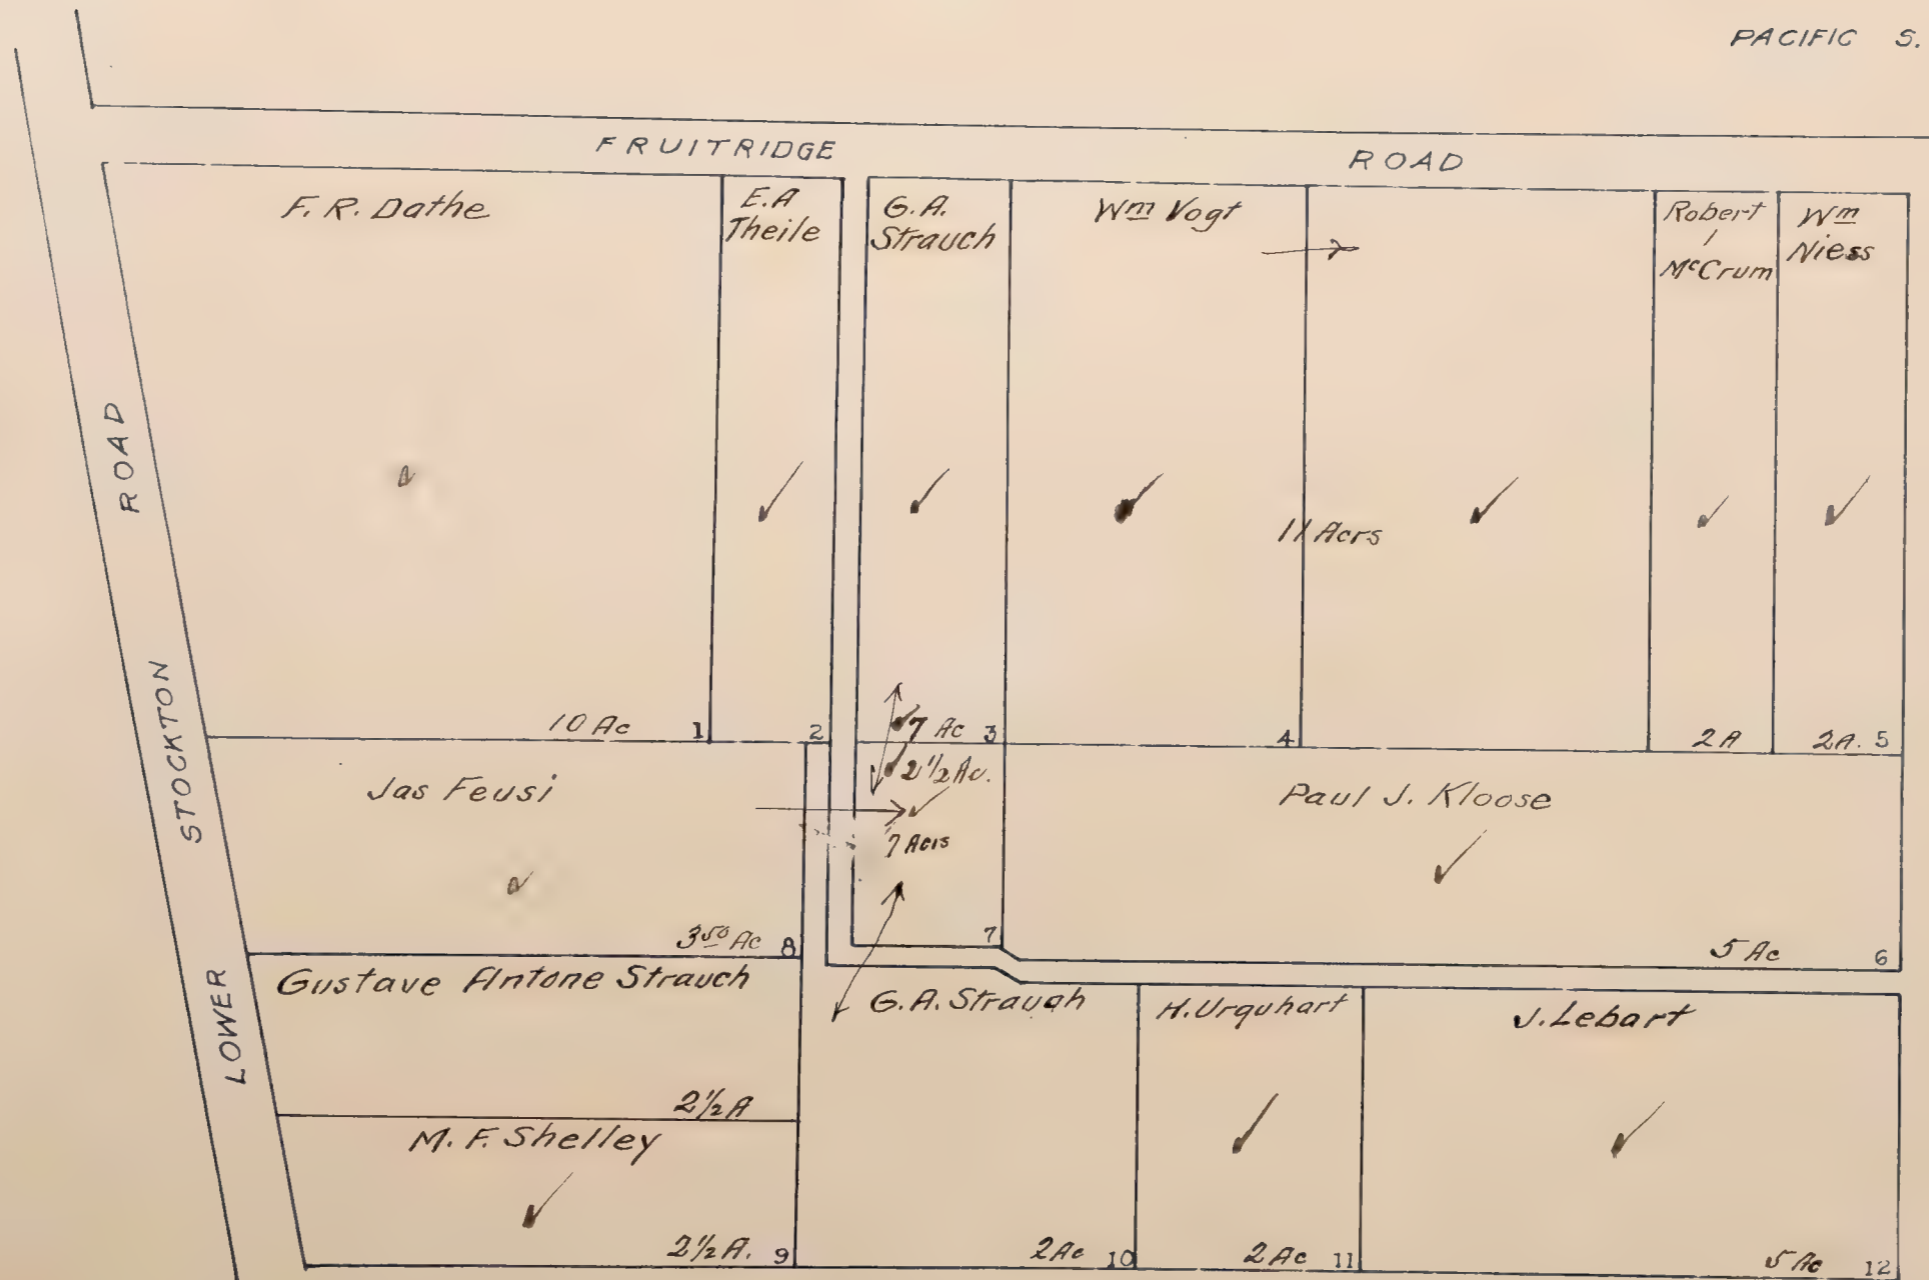 PACIFIC S.
FRUITRIDGE ROAD
F. R. Dathe
E. A
Theile
G. A.
Strauch
Wm Vogt
Robert
McCrum
Wm
Niess
11 Acrs
10 Ac 1
2
7 Ac 3
4
2A
2A. 5
Jas Feusi
2 1/2 Ac.
7 Acrs
Paul J. Kloose
3 50 Ac 8
7
5 Ac 6
Gustave Antone Strauch
2 1/2 A
G. A. Strauch
H. Urquhart
J. Lebart
M. F. Shelley
2 1/2 A. 9
2 Ac 10
2 Ac 11
5 Ac 12
LOWER STOCKTON ROAD